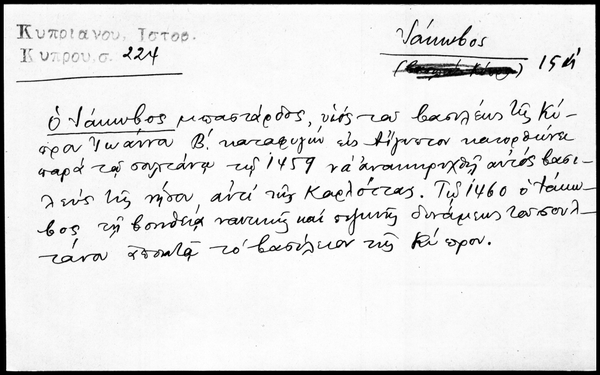 Κυπριανου, Ιστορ.
Κυπρου, σ. 224
Ἰάκωβος
15 Α
Ὁ Ἰάκωβος μπαστάρδος, υἱός του βασιλέως τῆς Κύ-
πρου Ἰωάννου Β΄. καταφυγών εἰς Αἴγυπτον κατορθώνει
παρά τοῦ σουλτάνου τῷ 1459 νά ἀνακηρυχθῇ αὐτός βασι-
λεύς τῆς νήσου, ἀντί τῆς Καρλόττας. Τῷ 1460 ὁ Ἰάκω-
βος τῇ βοηθείᾳ ναυτικῆς καί πεζικῆς δυνάμεως του σουλ-
τάνου ἀποκτᾷ τό βασίλειον τῆς Κύπρου.